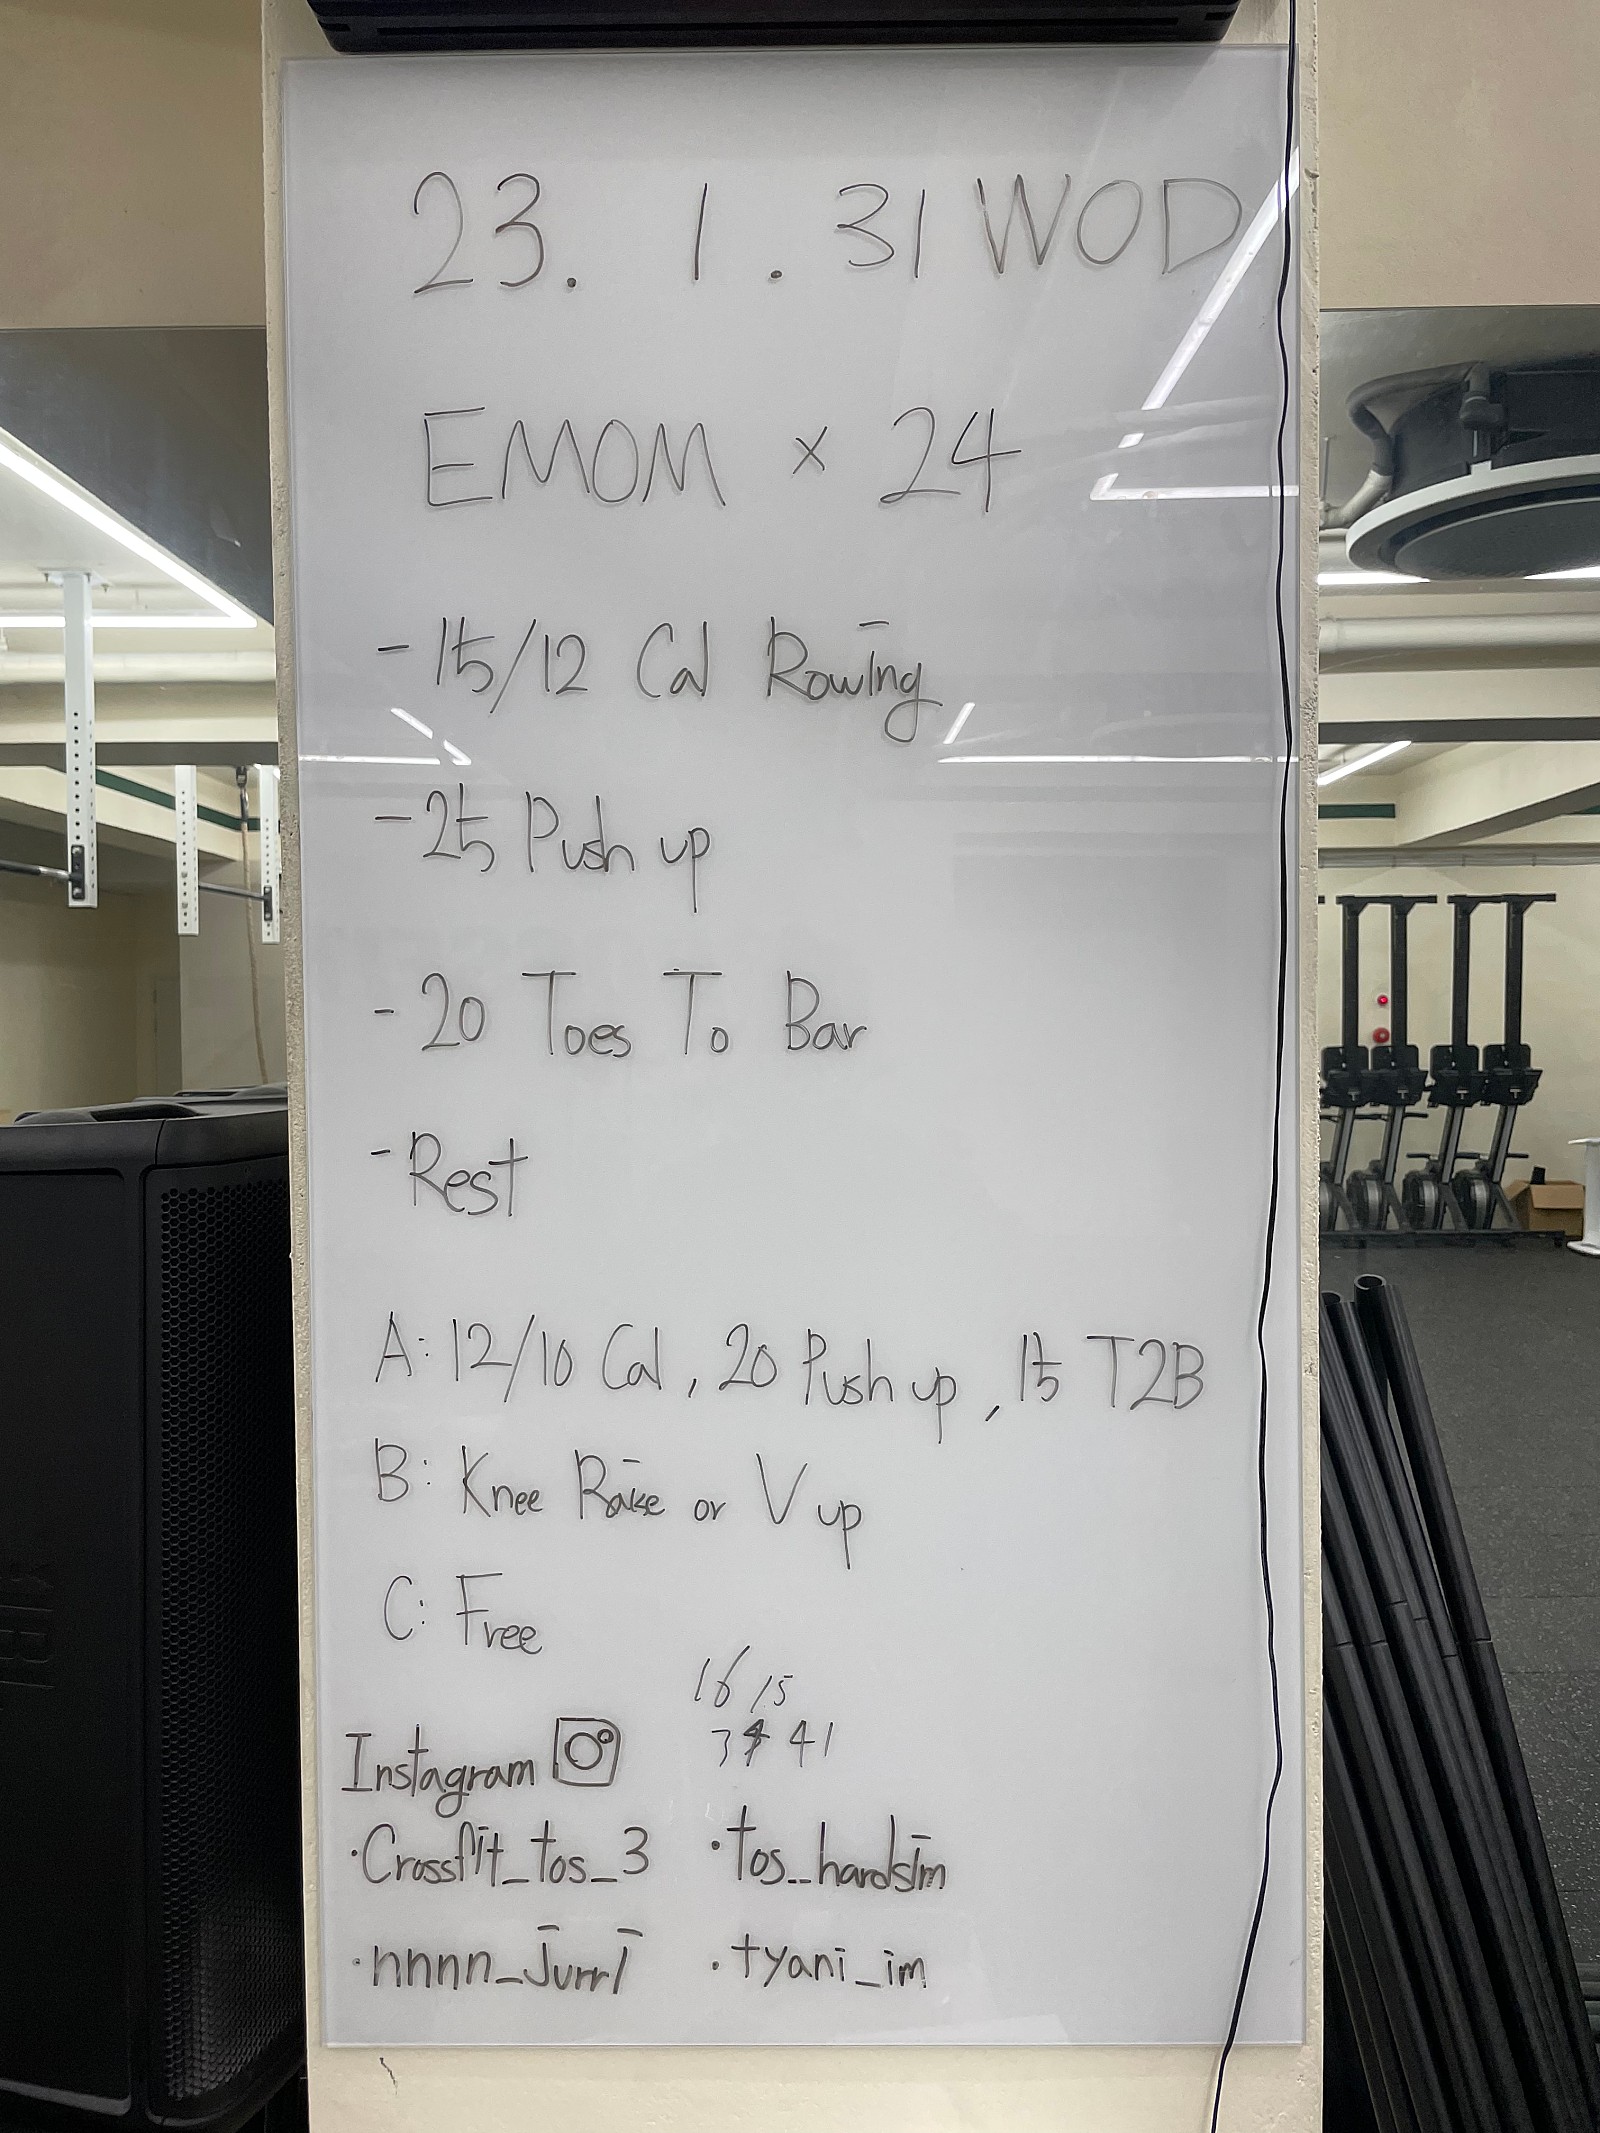 23. 1. 31 WOD
EMOM × 24
- 15/12 Cal Rowing
- 25 Push up
- 20 Toes To Bar
- Rest
A: 12/10 Cal, 20 Push up, 15 T2B
B: Knee Raise or V up
C: Free
16 15
41
Instagram
· Crossfit_tos_3 · tos_hardsim
· nnnn_jurri · tyani_im